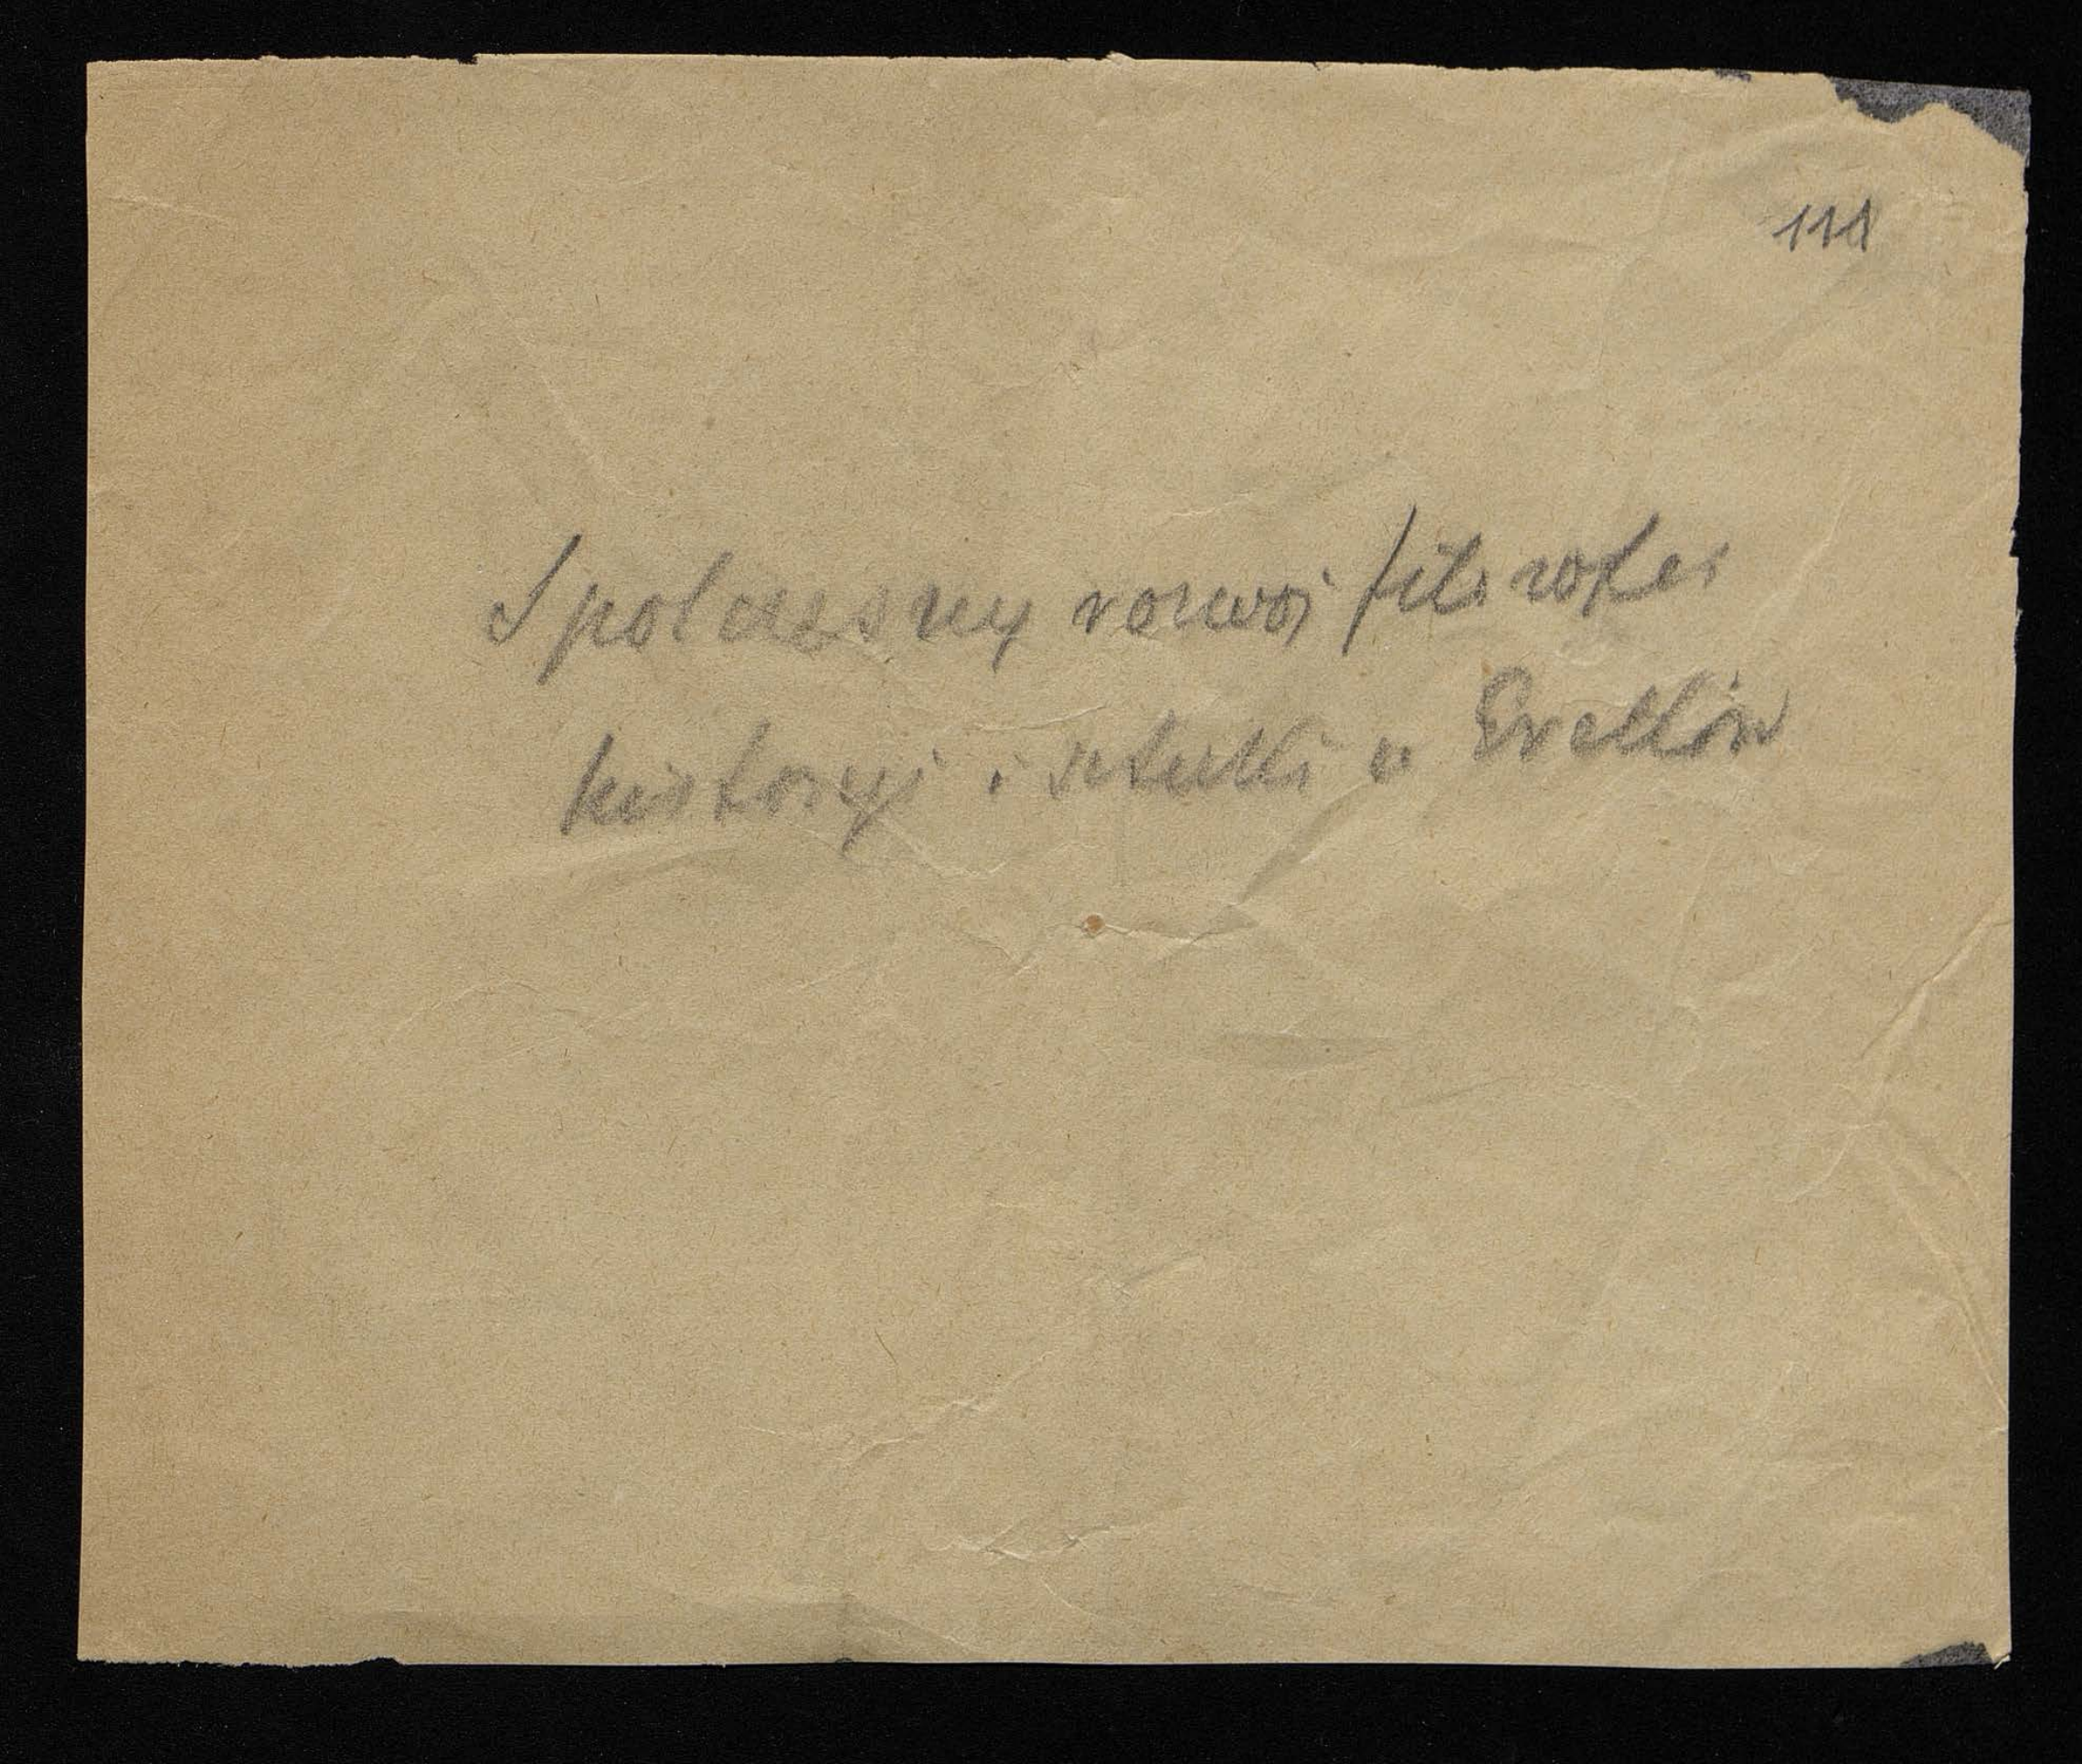 111
Spolczesny rozwój filozofii
historyi i sztuki u Greków